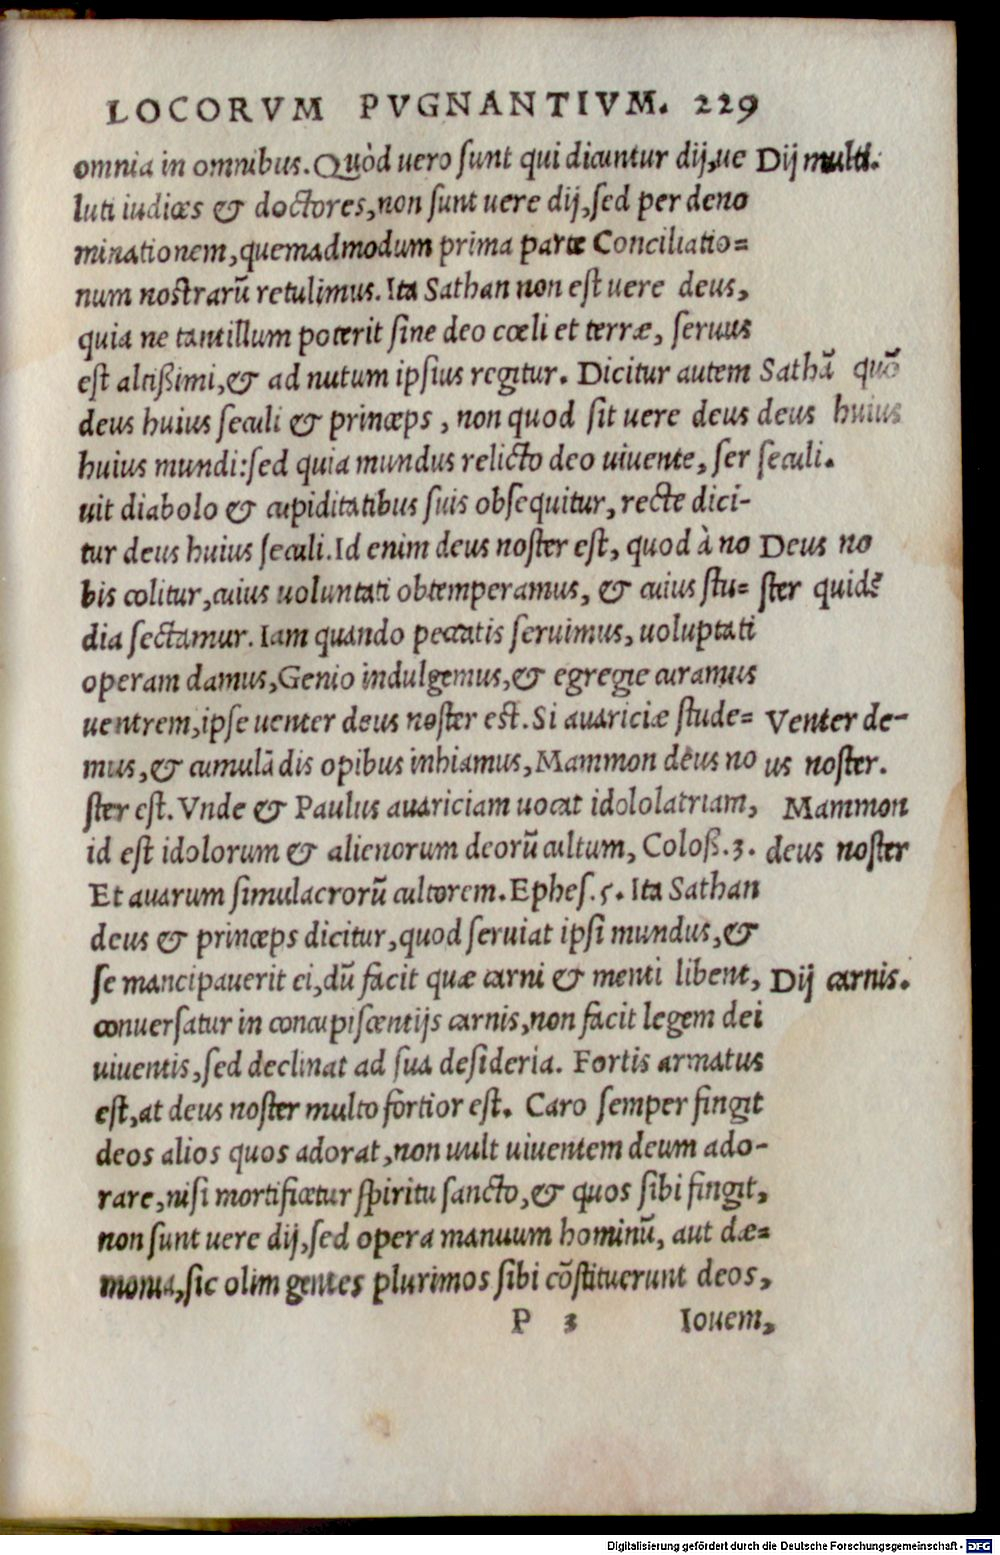 LOCORVM PVGNANTIVM. 229
omnia in omnibus. Quòd uero sunt qui dicuntur dij, ue
Dij multi.
luti iudices & doctores, non sunt uere dij, sed per deno
minationem, quemadmodum prima parte Conciliatio=
num nostrarū retulimus. Ita Sathan non est uere deus,
quia ne tantillum poterit sine deo cœli et terræ, seruus
est altißimi, & ad nutum ipsius regitur. Dicitur autem
Sathā quō
deus huius seculi & princeps, non quod sit uere deus
deus huius
huius mundi: sed quia mundus relicto deo uiuente, ser
seculi.
uit diabolo & cupiditatibus suis obsequitur, recte dici-
tur deus huius seculi. Id enim deus noster est, quod à no
Deus no
bis colitur, cuius uoluntati obtemperamus, & cuius stu=
ster quidē
dia sectamur. Iam quando peccatis seruimus, uoluptati
operam damus, Genio indulgemus, & egregie curamus
uentrem, ipse uenter deus noster est. Si auariciæ stude=
Venter de-
mus, & cumulādis opibus inhiamus, Mammon deus no
us noster.
ster est. Vnde & Paulus auariciam uocat idololatriam,
Mammon
id est idolorum & alienorum deorū cultum, Coloß. 3.
deus noster
Et auarum simulacrorū cultorem. Ephes. 5. Ita Sathan
deus & princeps dicitur, quod seruiat ipsi mundus, &
se mancipauerit ei, dū facit quæ carni & menti libent,
Dij carnis.
conuersatur in concupiscentijs carnis, non facit legem dei
uiuentis, sed declinat ad sua desideria. Fortis armatus
est, at deus noster multo fortior est. Caro semper fingit
deos alios quos adorat, non uult uiuentem deum ado-
rare, nisi mortificetur spiritu sancto, & quos sibi fingit,
non sunt uere dij, sed opera manuum hominū, aut dæ=
monia, sic olim gentes plurimos sibi cōstituerunt deos,
P 3 Iouem,
Digitalisierung gefördert durch die Deutsche Forschungsgemeinschaft - DFG